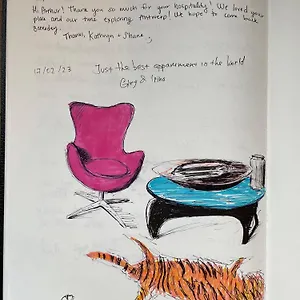 Hi Arthur! Thank you so much for your hospitality! We loved your
place and our time exploring Antwerp! We hope to come back
someday.
Thanks, Kathryn + Shane
17/02/23
Just the best appartment in the world
&